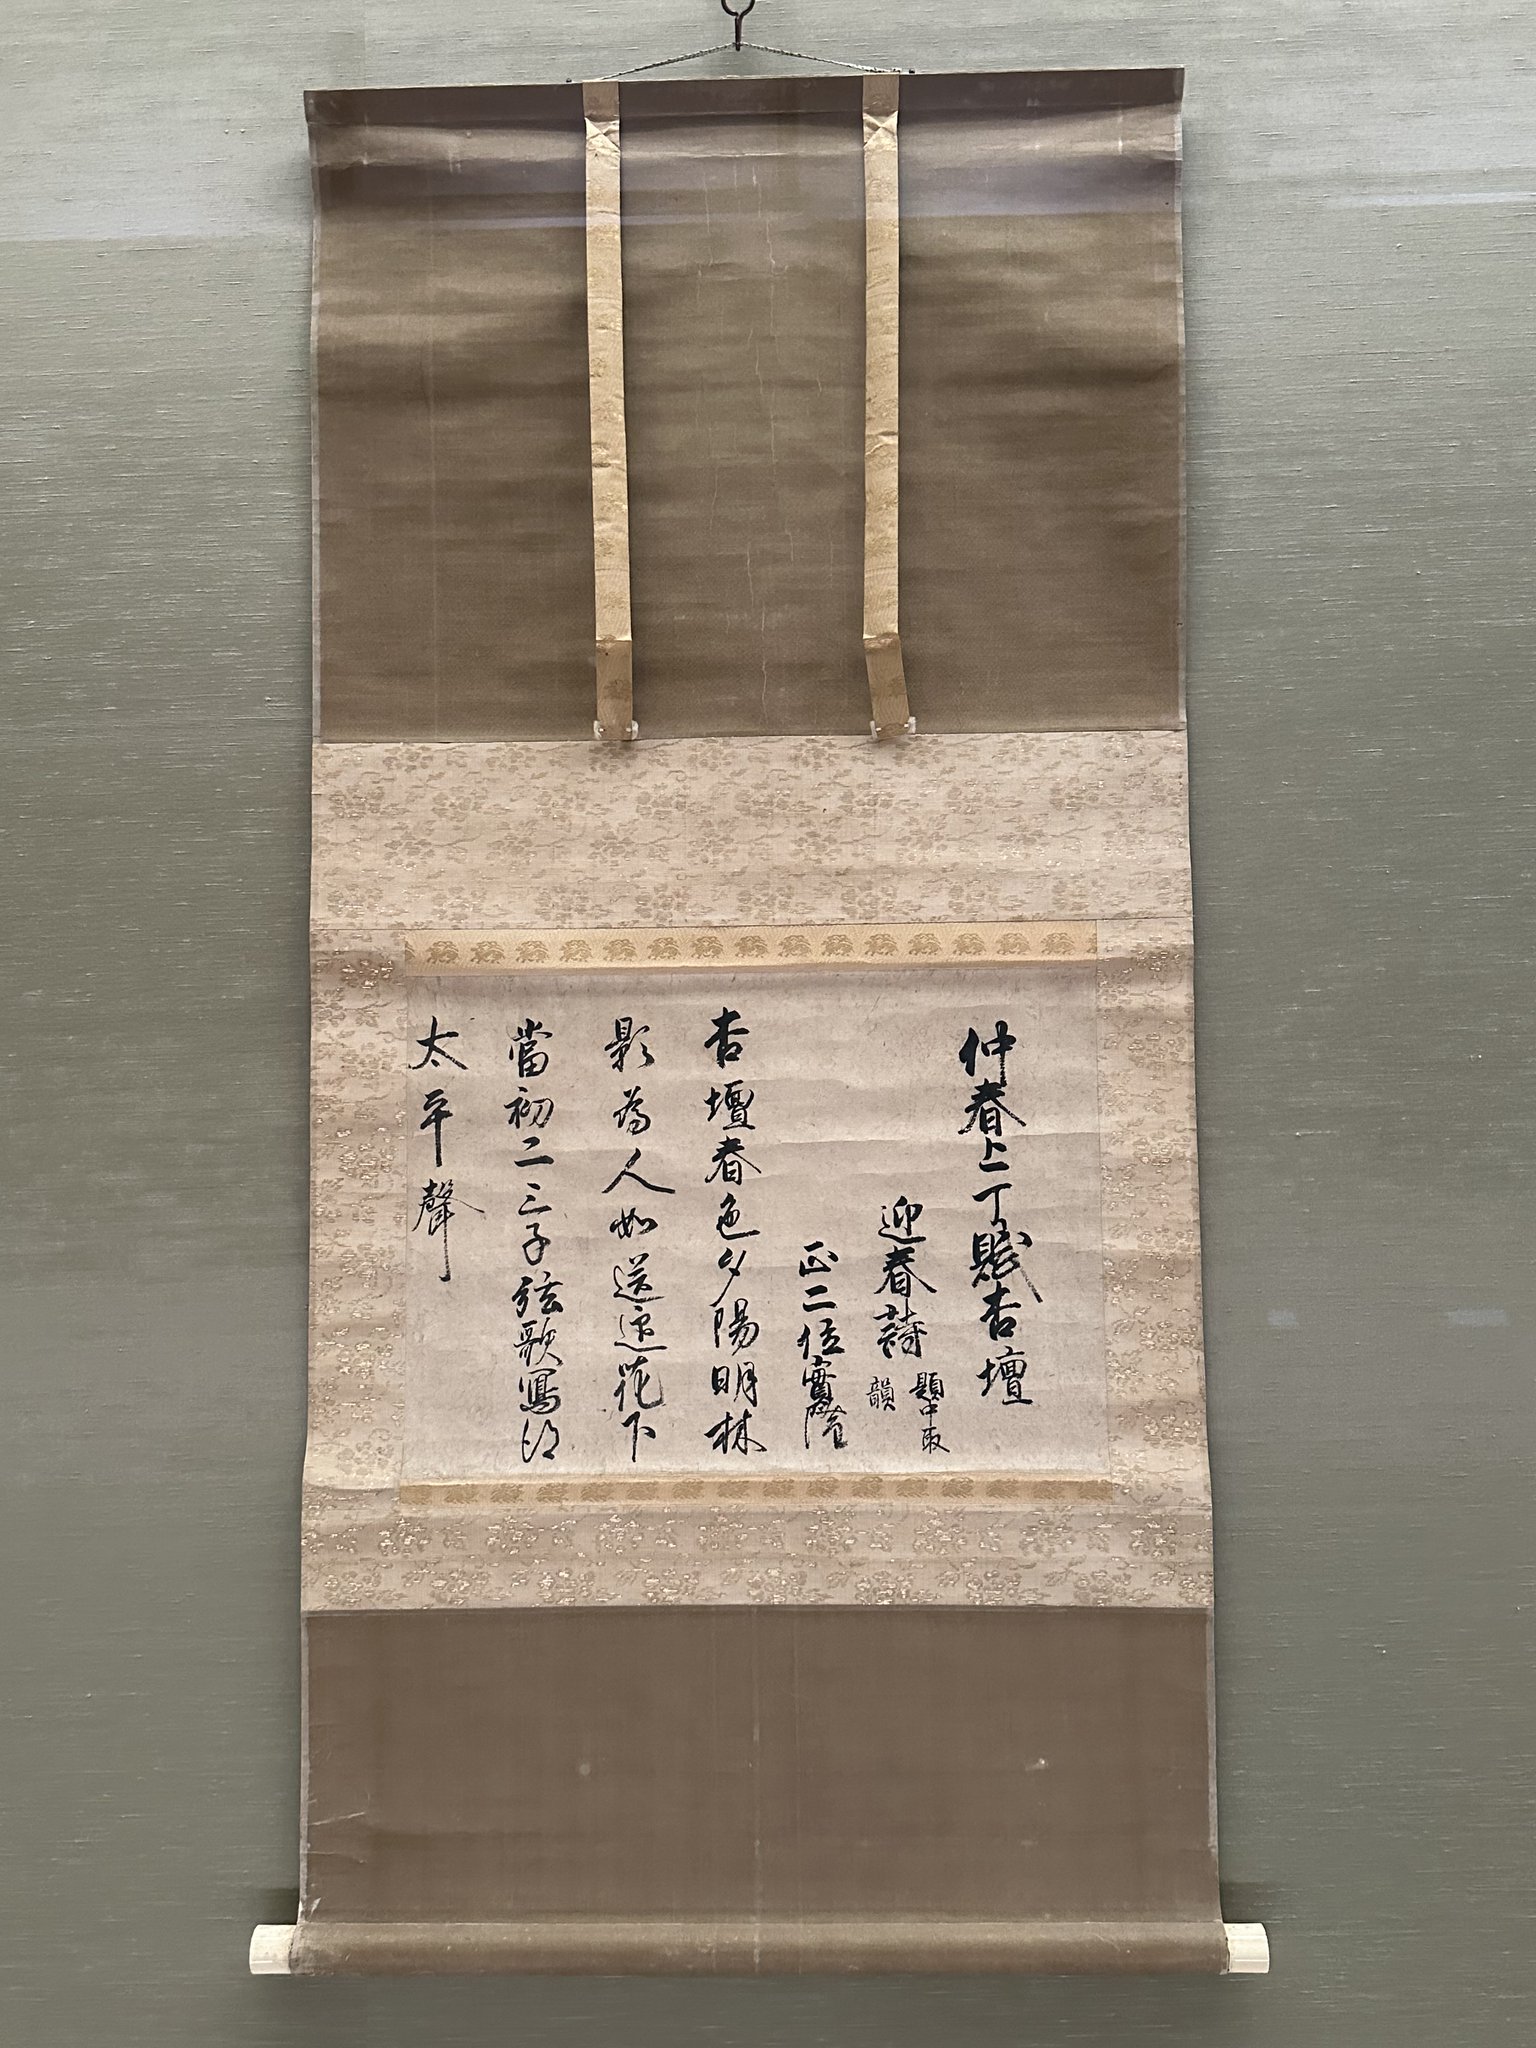 仲春上丁賦杏壇
迎春詩
題中取
韻
正二位實隆
杏壇春色夕陽明林
影為人如送迎花下
當初二三子弦歌寫得
太平聲